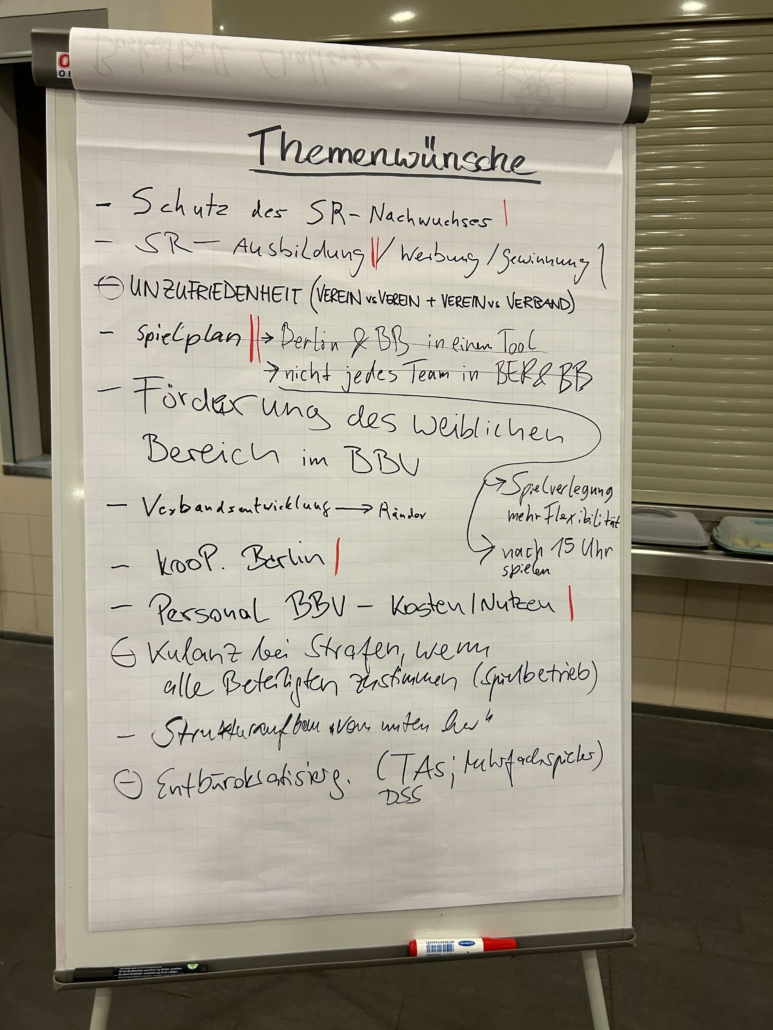 Themenwünsche
- Schutz des SR-Nachwuchses |
- SR - Ausbildung || / Werbung / Gewinnung |
- UNZUFRIEDENHEIT (VEREIN vs VEREIN + VEREIN vs VERBAND)
- Spielplan || → Berlin & BB in einem Tool
→ nicht jedes Team in BER & BB
- Förderung des weiblichen
Bereich im BBV
→ Spielverlegung
mehr Flexibilität
→ nach 15 Uhr
spielen
- Verbandsentwicklung → Ränder
- Koop. Berlin |
- Personal BBV - Kosten/Nutzen |
- Kulanz bei Strafen, wenn
alle Beteiligten zustimmen (Spielbetrieb)
- Strukturaufbau „von unten her"
- Entbürokratisierg. (TAs; Mehrfachspieler)
DSS